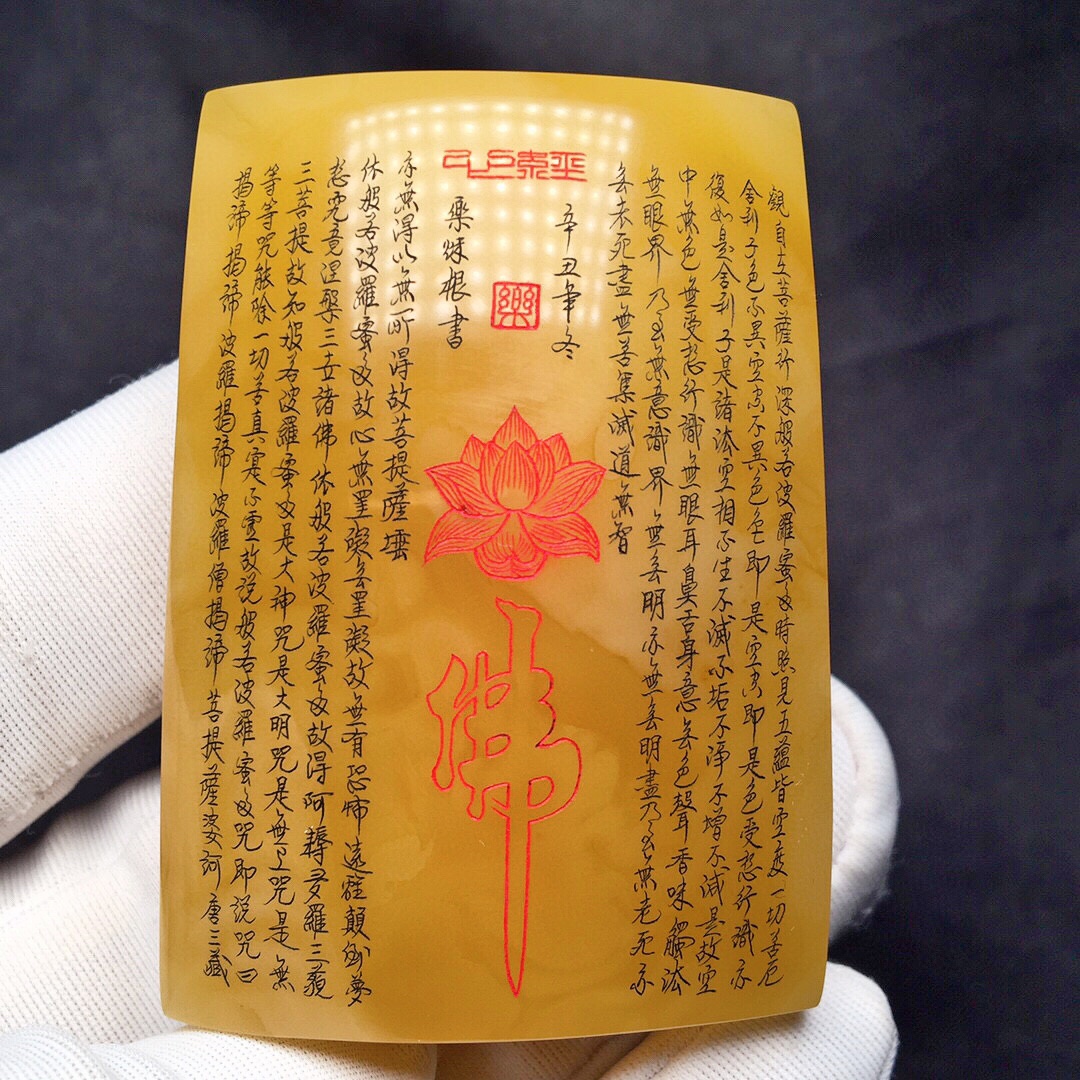 觀自在菩薩行深般若波羅蜜多時照見五蘊皆空度一切苦厄
舍利子色不異空空不異色色即是空空即是色受想行識亦
復如是舍利子是諸法空相不生不滅不垢不淨不增不減是故空
中無色無受想行識無眼耳鼻舌身意無色聲香味觸法
無眼界乃至無意識界無無明亦無無明盡乃至無老死亦
無老死盡無苦集滅道無智
辛丑年冬
樂
樂根書
佛
亦無得以無所得故菩提薩埵
依般若波羅蜜多故心無罣礙無罣礙故無有恐怖遠離顛倒夢
想究竟涅槃三世諸佛依般若波羅蜜多故得阿耨多羅三藐
三菩提故知般若波羅蜜多是大神咒是大明咒是無上咒是無
等等咒能除一切苦真實不虛故說般若波羅蜜多咒即說咒曰
揭諦揭諦波羅揭諦波羅僧揭諦菩提薩婆訶唐三藏